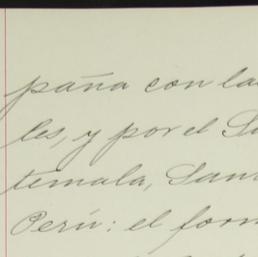 paña con la
les, y por el
temala, San
Perú: el for